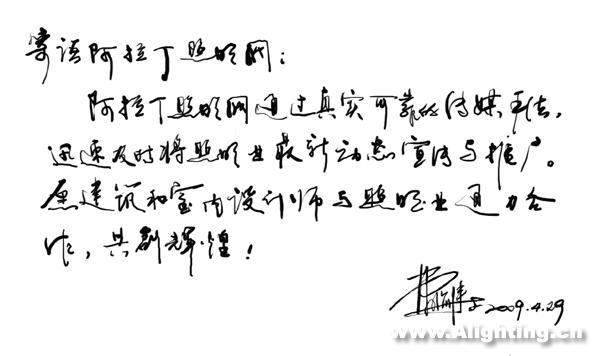 寄语阿拉丁照明网:
阿拉丁照明网通过真实可靠的传媒
迅速及时将照明业最新动态宣传与推广。
愿建筑和室内设计师与照明业通力合
作,共创辉煌!
于2009.4.29
www.Alighting.cn